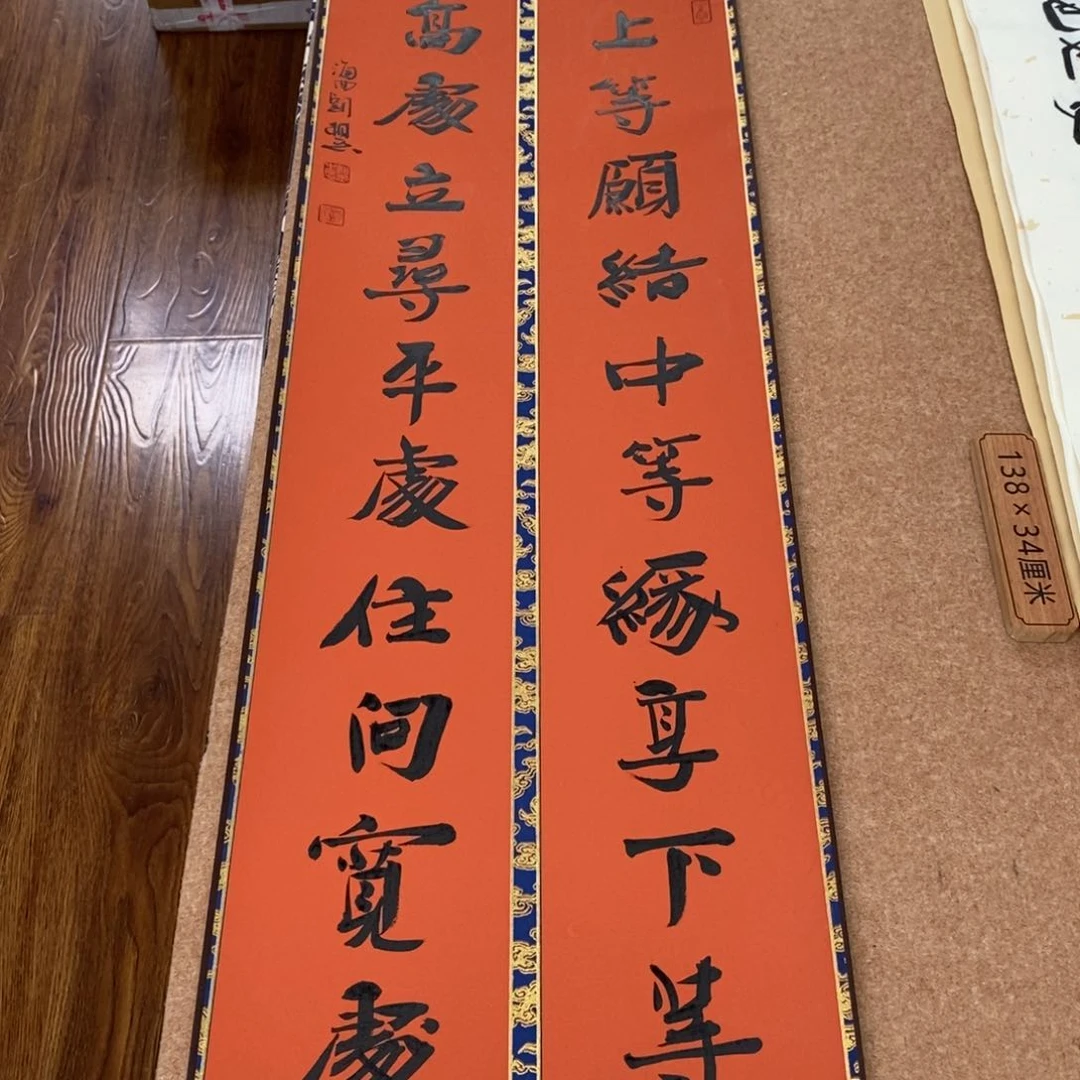 上等願結中等緣享下等
高處立尋平處住向寬處
138×34厘米